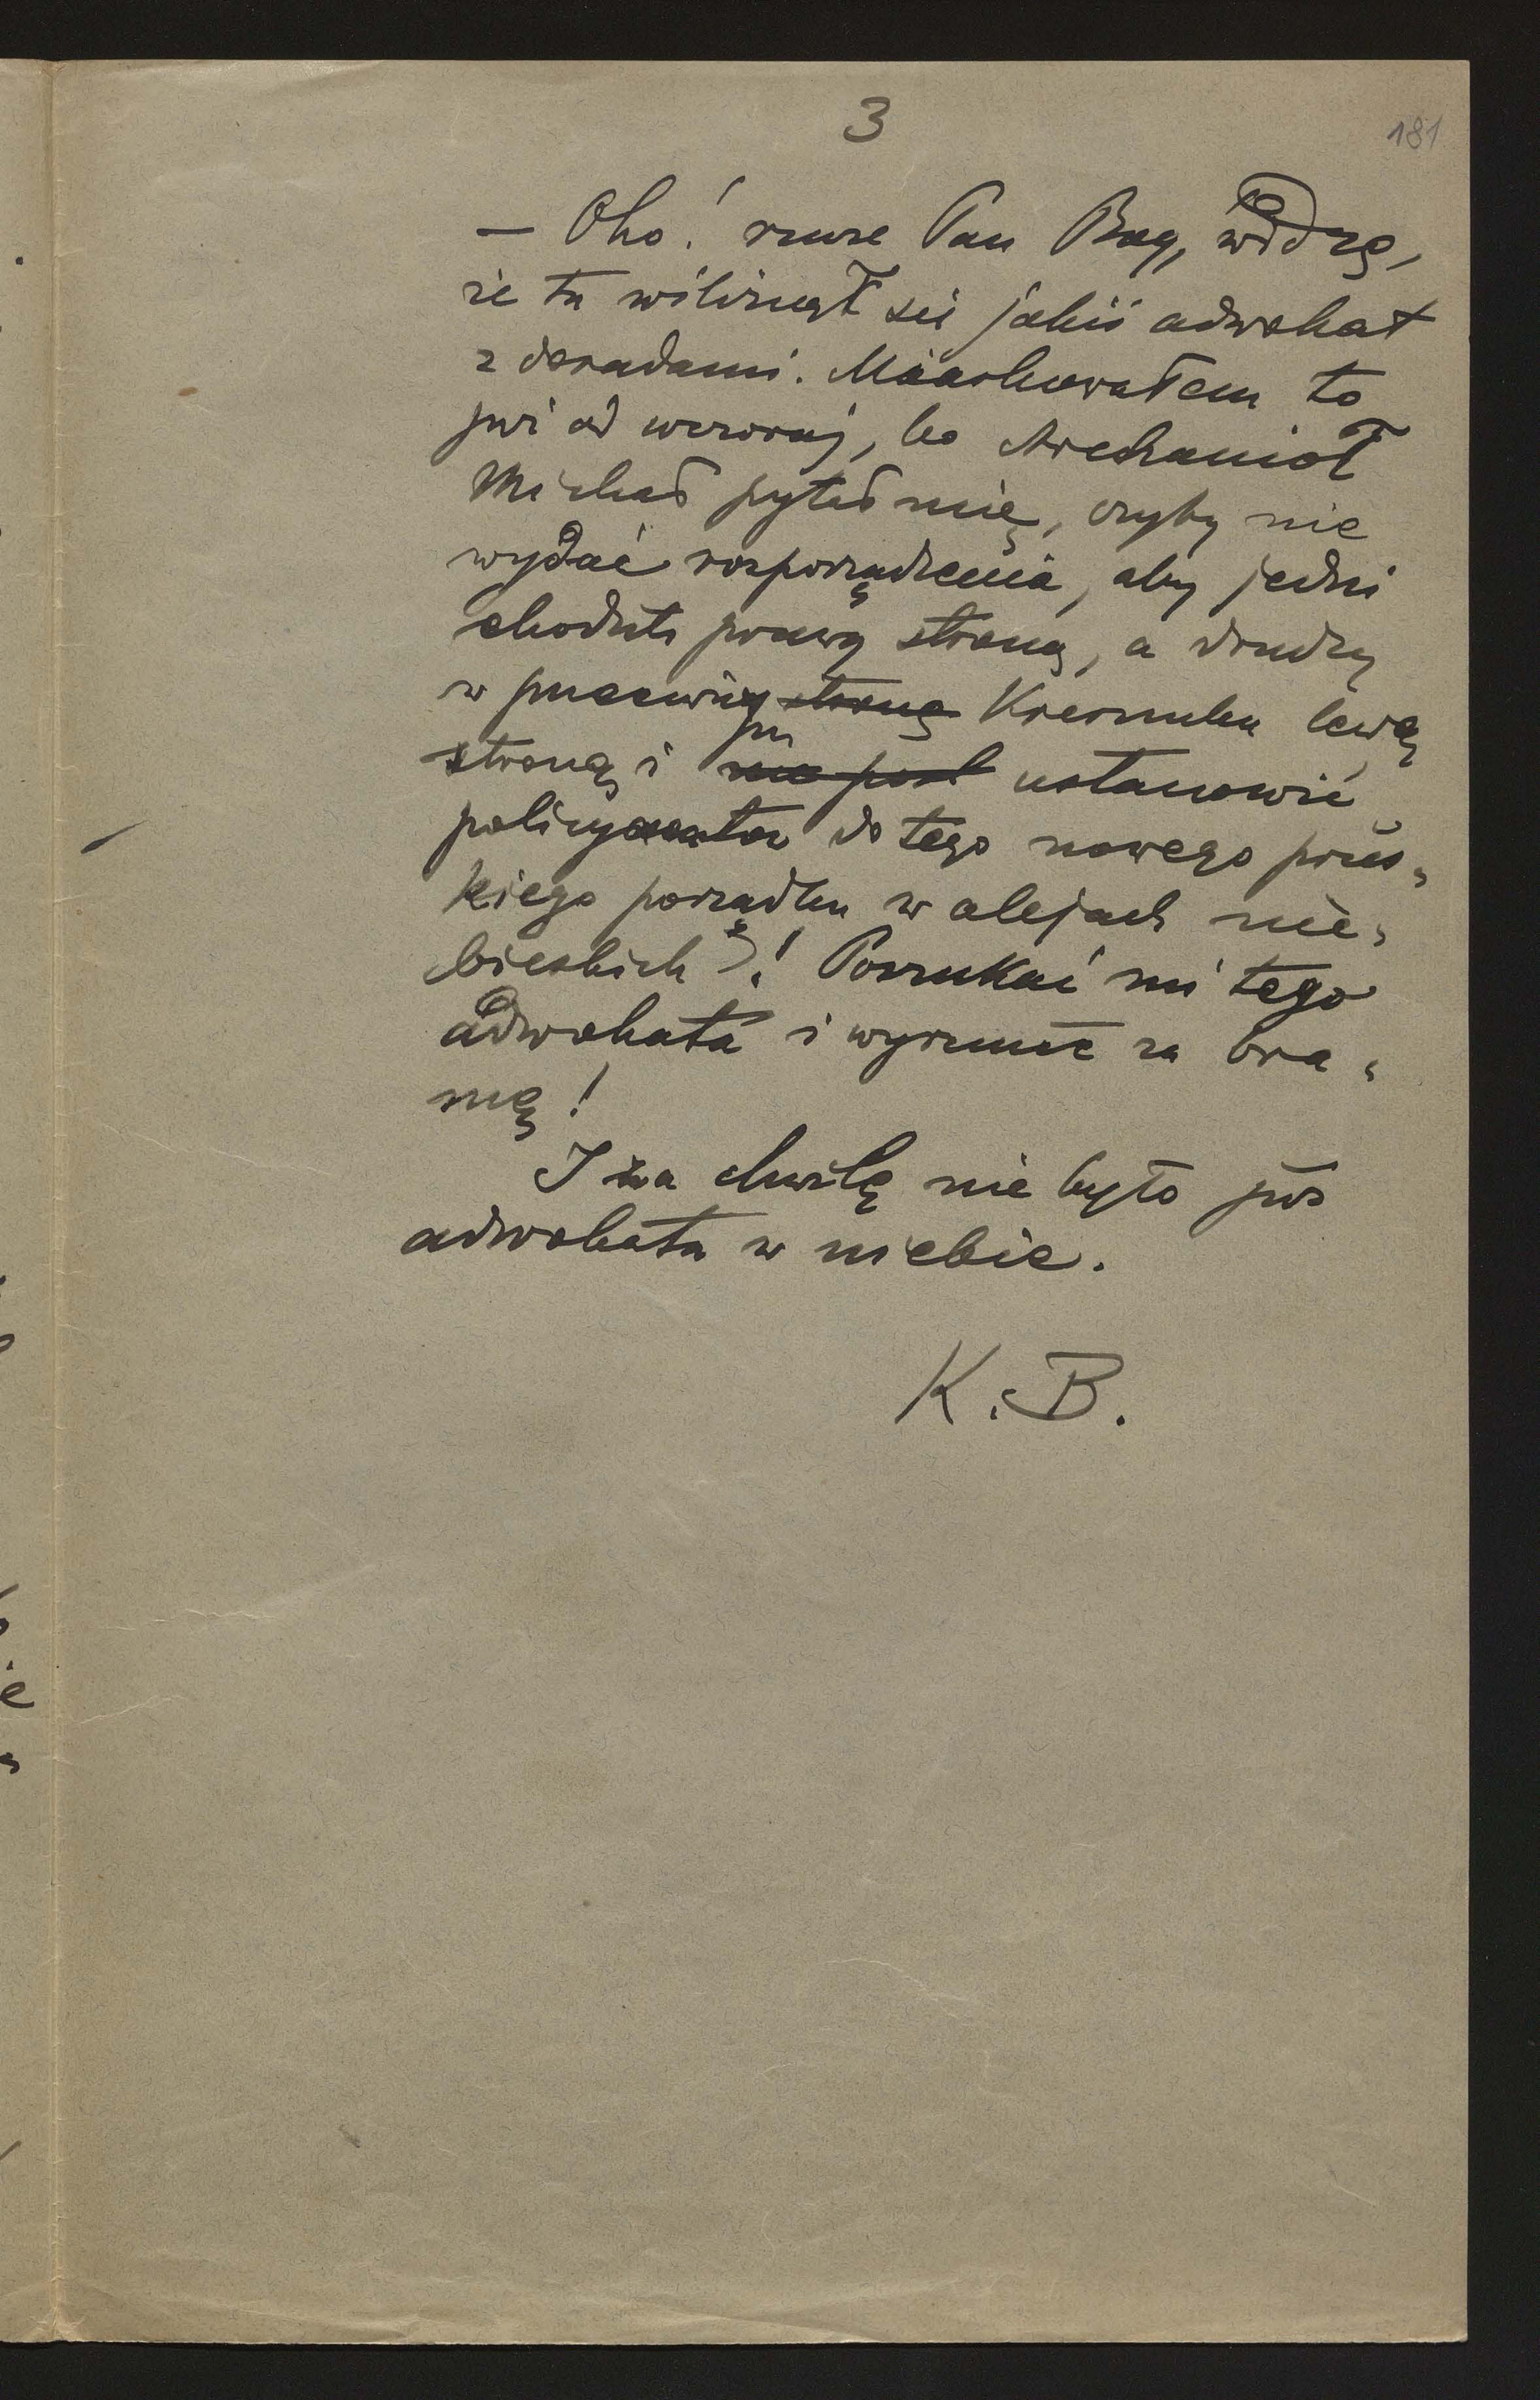 3
181
— Oho! rzecze Pan Bóg, widzę,
że tu wśliznął się jakiś adwokat
z doradami. Miarkowałem to
już od wczoraj, bo Archanioł
Michał pytał mię, czyby nie
wydać rozporządzenia, aby jedni
chodzili prawą stroną, a drudzy
w przeciwną stronę Kierunku lewą
stroną i
ustanowić
policyantów do tego nowego prus-
kiego porządku w alejach nie-
bieskich?! Poszukać mi tego
adwokata i wyrzucić za bra-
mę!
I za chwilę nie było już
adwokata w niebie.
K. B.